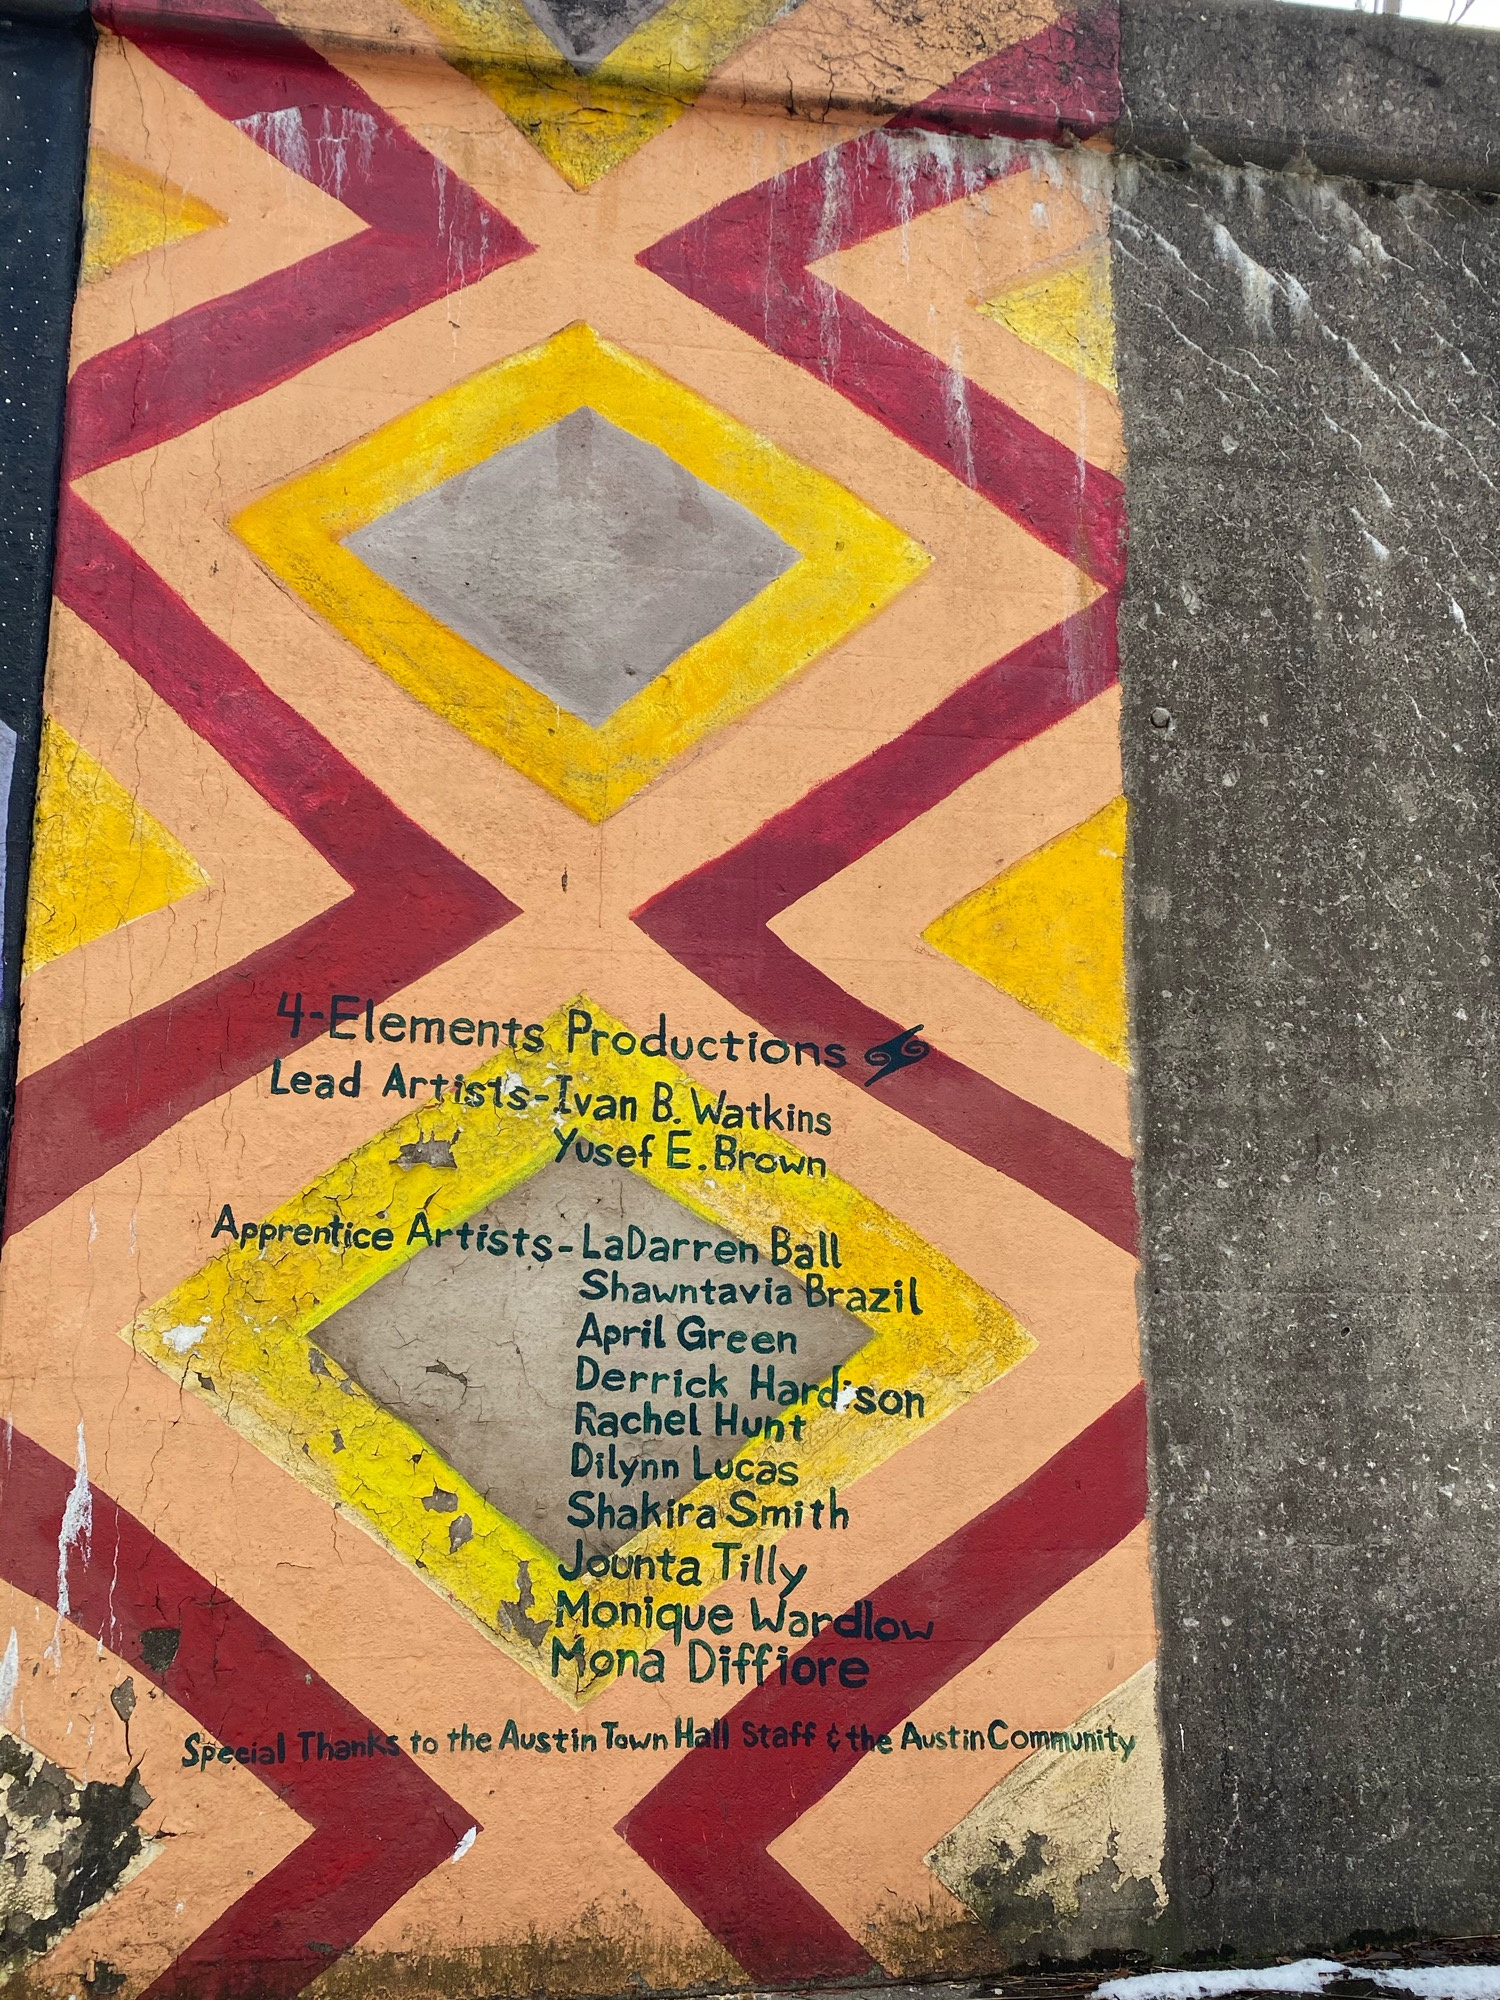 4-Elements Productions
Lead Artists-Ivan B. Watkins
Yusef E. Brown
Apprentice Artists-LaDarren Ball
Shawntavia Brazil
April Green
Derrick Hardison
Rachel Hunt
Dilynn Lucas
Shakira Smith
Jounta Tilly
Monique Wardlow
Mona Diffiore
Special Thanks to the Austin Town Hall Staff & the Austin Community